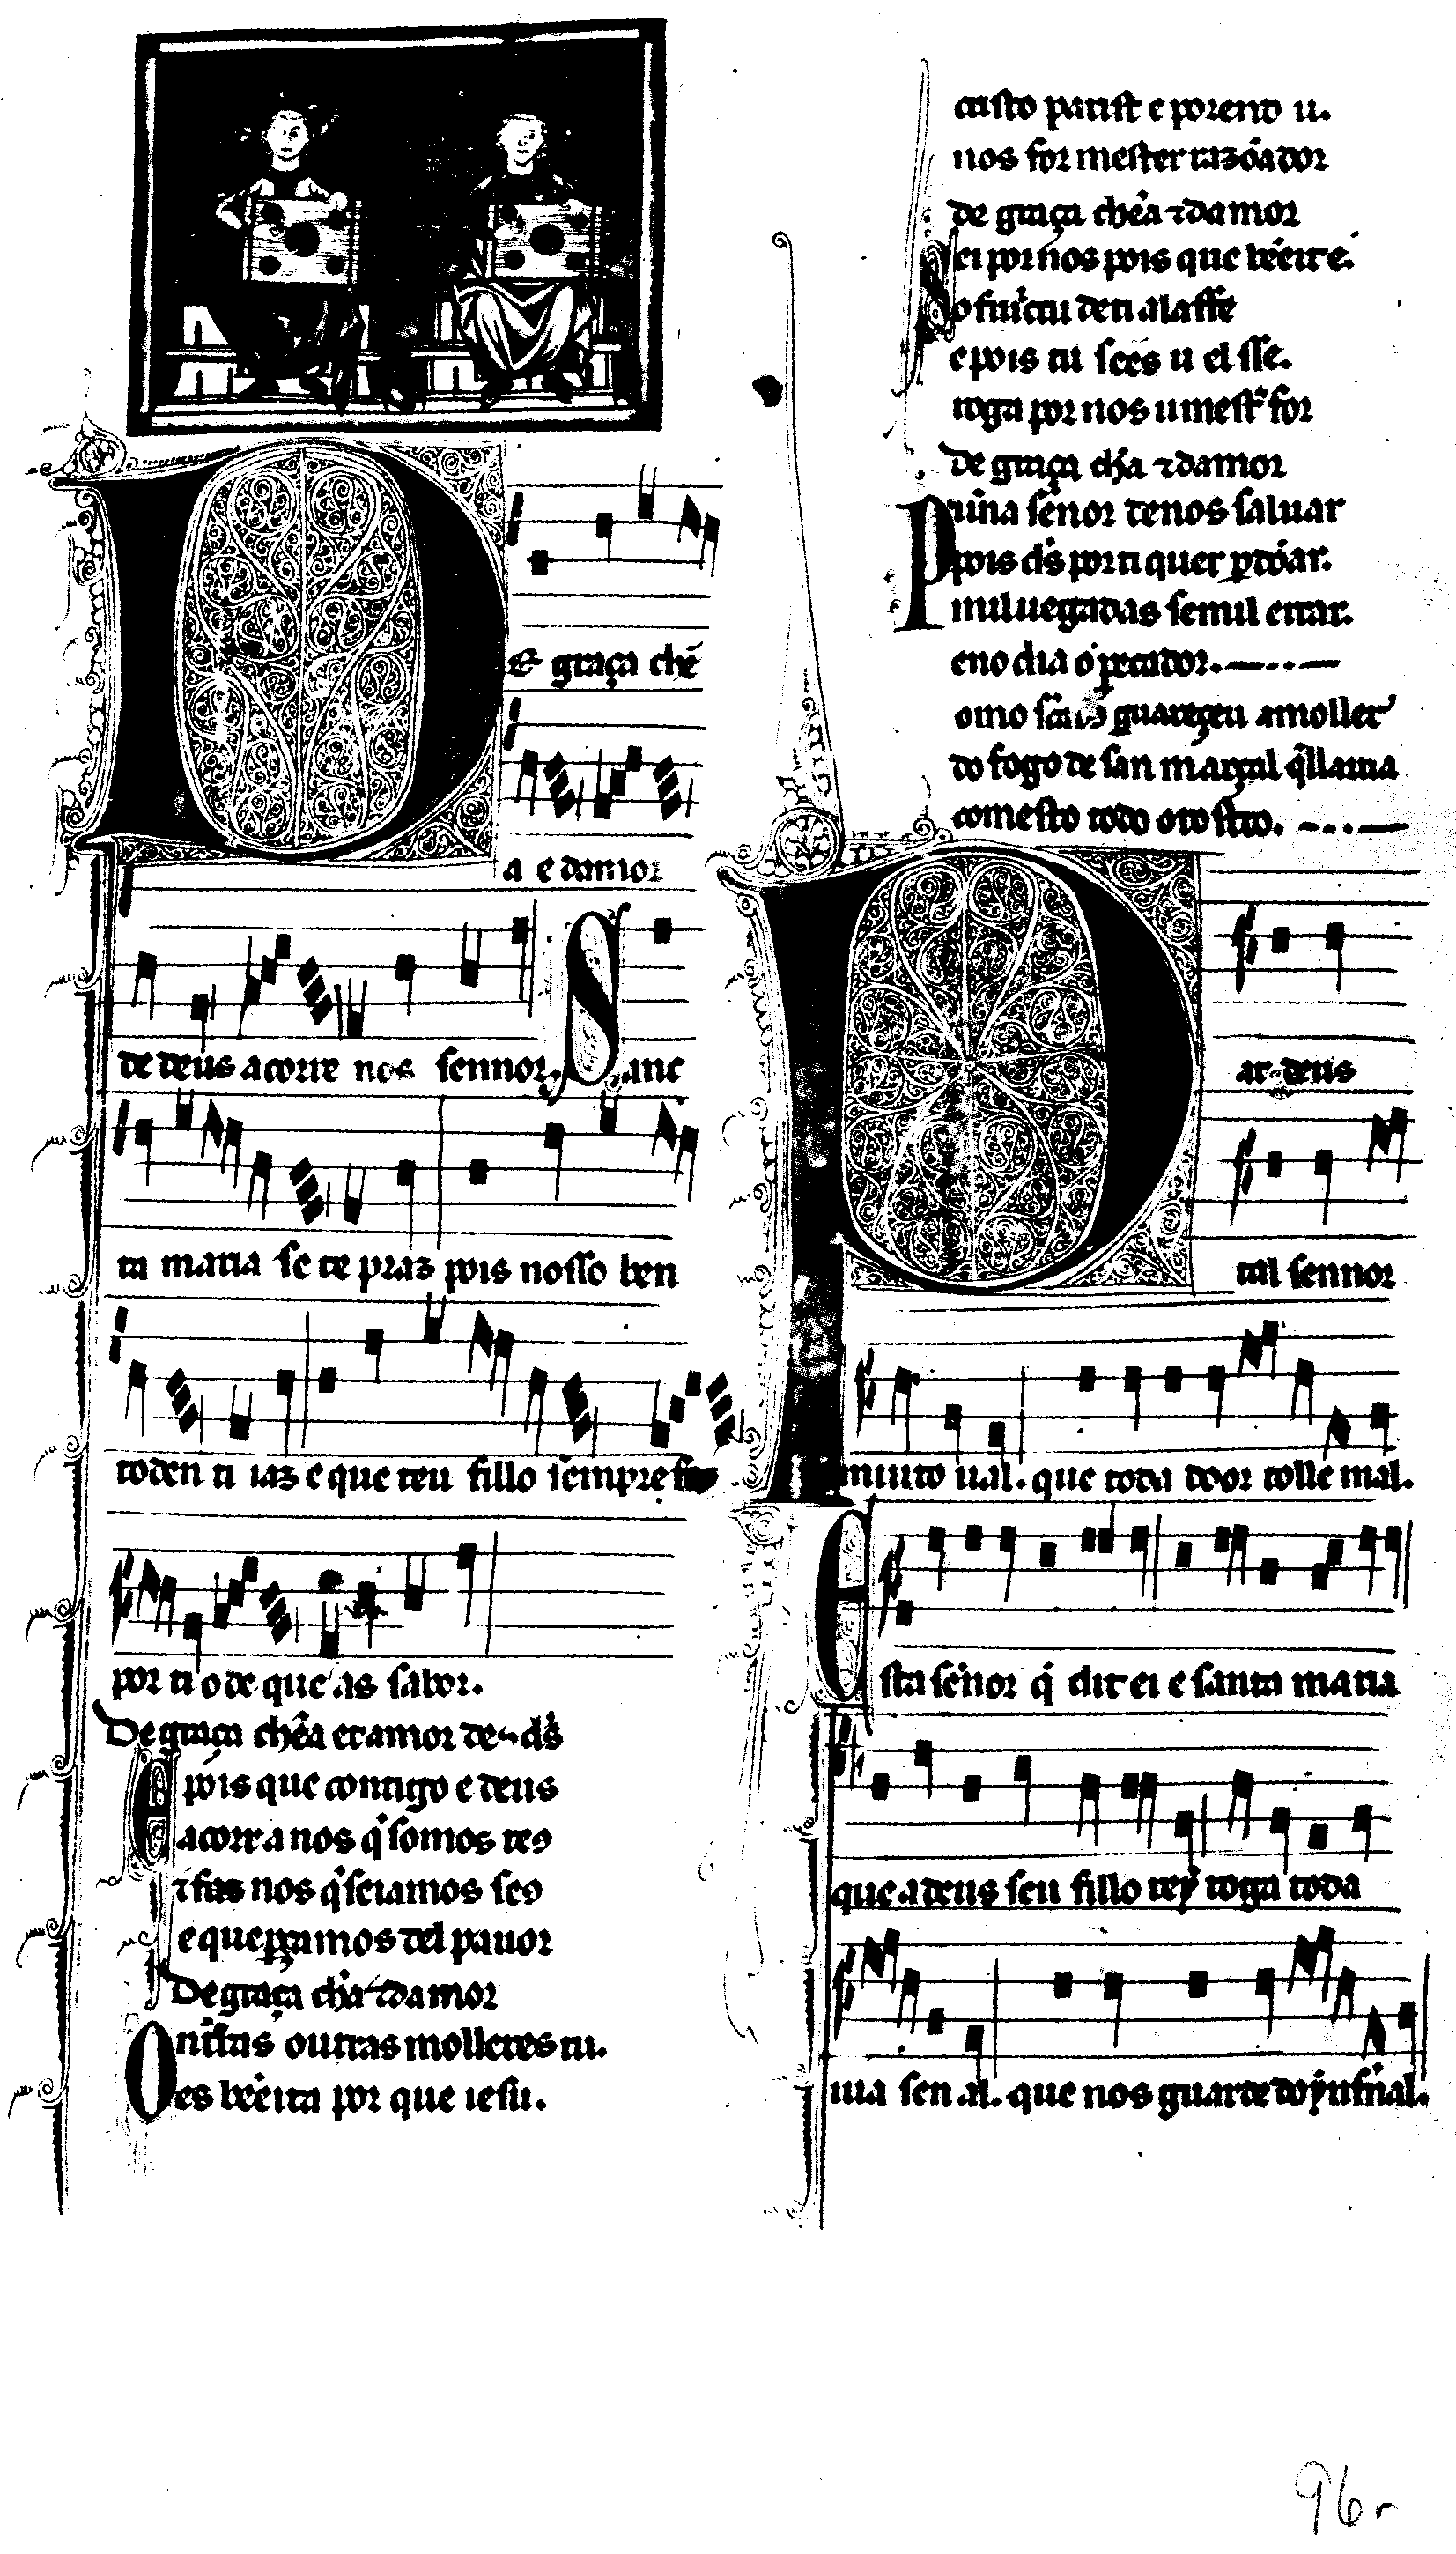 DE graça chẽ
a e damor
de deus acorre nos sennor. Sanc
ta maria se te praz pois nosso ben
toden ti iaz e que teu fillo sempre faz
por ti o de que as sabor.
De graça chẽa et amor de ds̃
E pois que contigo e deus
acorr a nos q̇ somos teꝯ
⁊ fas nos q̇ seiamos seꝯ
e que p̱çamos del pauor
De graça chẽa ⁊ damor
Ontr̃las outras molleres tu.
es bẽeita por que iesu.
cristo parist e porend u.
nos for mester razõador
de graça chẽa ⁊ damor
Rei por nos pois que bẽeit e.
o fruitu de ti a la ffe
e pois tu sees u el sse.
roga por nos u mest̉ for
de graça chẽa ⁊ damor
Punna sẽnor de nos saluar
pois ds̃ por ti quer p̱dõar.
mil uegadas se mil errar.
eno dia o pecador.
omo sc̃a guareçeu a moller
do fogo de san marçal q̇ ll auia
comesto todo o rostro.
Par deus
tal sennor
muito ual. que toda door tolle mal.
Esta sẽnor q̇ dit ei e santa maria
que a deus seu fillo rey roga toda
uia sen al. que nos guarde do ynfr̃nal.
96r